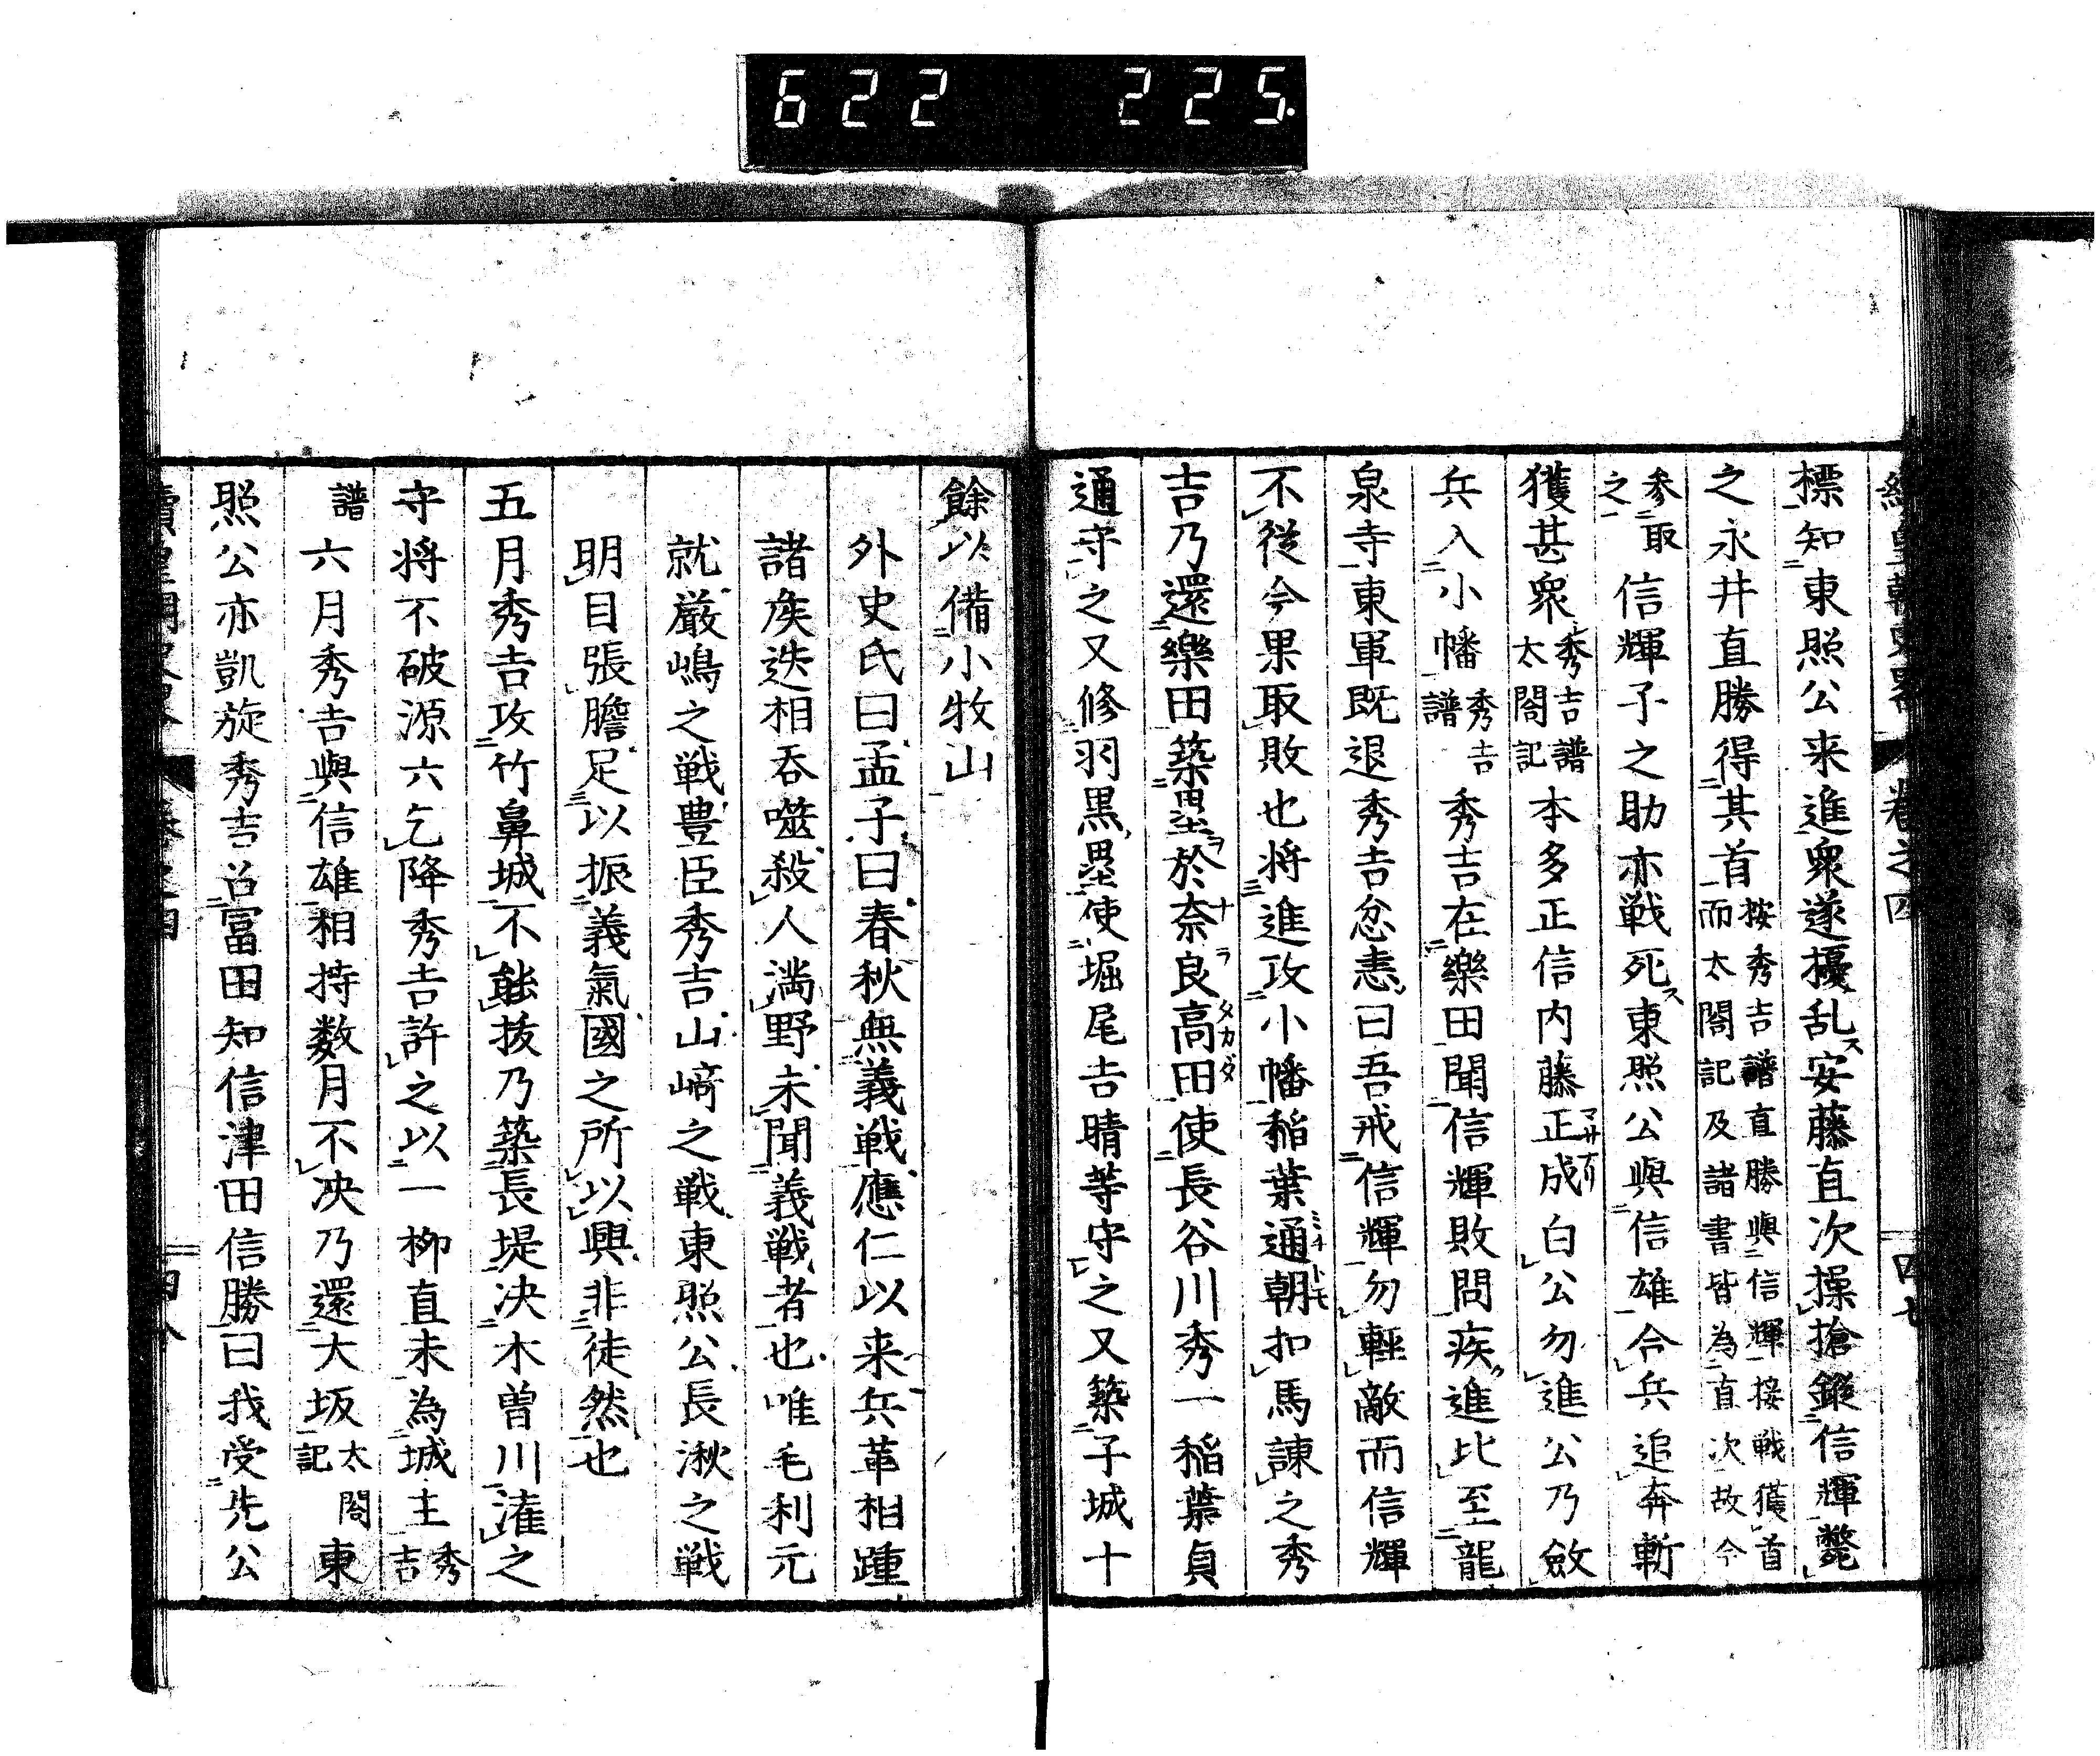 622 225.
卷之四
標知東照公来進衆遂擾乱ス安藤直次操搶鏦信輝斃
之永井直勝得其首按秀吉譜直勝與信輝接戦獲首
而太閤記及諸書皆為直次故今
参取
之信輝子之助亦戦死ス東照公與信雄令兵追奔斬
獲甚衆秀吉譜
太閤記本多正信内藤正成マサナリ白公勿進公乃斂
兵入小幡秀吉
譜秀吉在樂田聞信輝敗問疾進比至龍
泉寺東軍既退秀吉忿恚曰吾戒信輝勿輕敵而信輝
不從今果取敗也将進攻小幡稲葉通朝ミチトモ扣馬諌之秀
吉乃還樂田築壘ヲ於奈ナ良ラ高田タカダ使長谷川秀一稲葉貞
通守之又修羽黒塁使堀尾吉晴等守之又築子城十
餘以備小牧山
外史氏曰孟子曰春秋無義戦應仁以来兵革相踵
諸矦迭相吞噬殺人満野未聞義戦者也唯毛利元
就厳嶋之戦豊臣秀吉山﨑之戦東照公長湫之戦
明目張膽足以振義氣國之所以興非徒然也
五月秀吉攻竹鼻城不能抜乃築長堤决木曽川潅之
守将不破源六乞降秀吉許之以一柳直末為城主秀
吉
譜六月秀吉與信雄相持数月不决乃還大坂太閤
記東
照公亦凱旋秀吉召冨田知信津田信勝曰我受先公